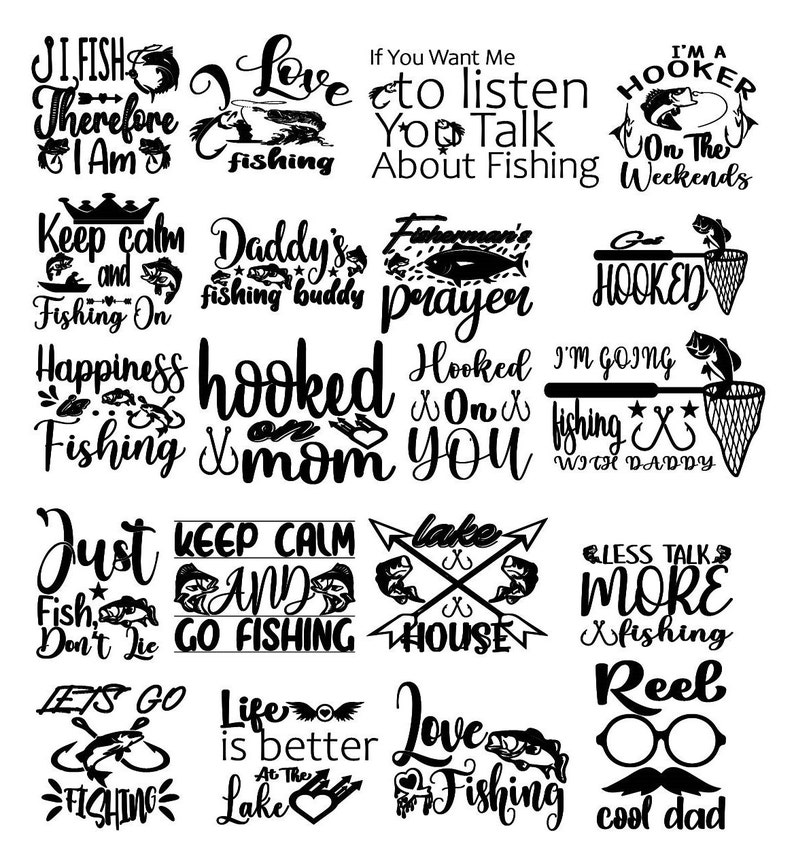 I, FISH
Therefore
I Am
I Love
fishing
If You Want Me
to listen
You Talk
About Fishing
I'M A
HOOKER
On The
Weekends
Keep calm
and
Fishing On
Daddy's
fishing buddy
Fisherman's
prayer
Get
HOOKED
Happiness
Fishing
hooked
on
mom
Hooked
On
YOU
I'M GOING
fishing
WITH DADDY
Just
Fish,
Don't Lie
KEEP CALM
AND
GO FISHING
lake
HOUSE
LESS TALK
MORE
fishing
LETS GO
FISHING
Life
is better
At The
Lake
Love
Fishing
Reel
cool dad